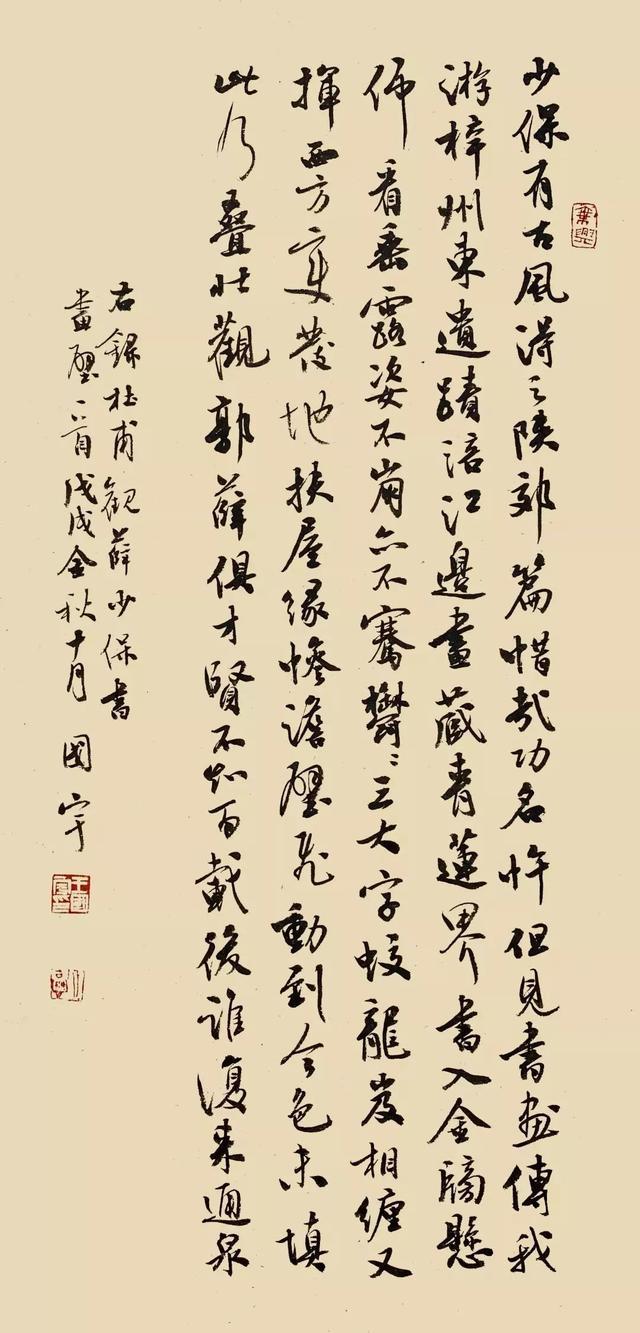 少保有古風得之陝郊篇惜哉功名忤但見書畫傳我
游梓州東遺蹟涪江邊畫藏青蓮界書入金牓懸
仰看垂露姿不崩亦不騫鬱〻三大字蛟龍岌相纏又
揮西方變發地扶屋緣慘澹壁飛動到今色未填
此行疊壯觀郭薛俱才賢不知百載後誰復來通泉
右錄杜甫觀薛少保書
畫壁一首戊戌金秋十月 國宇